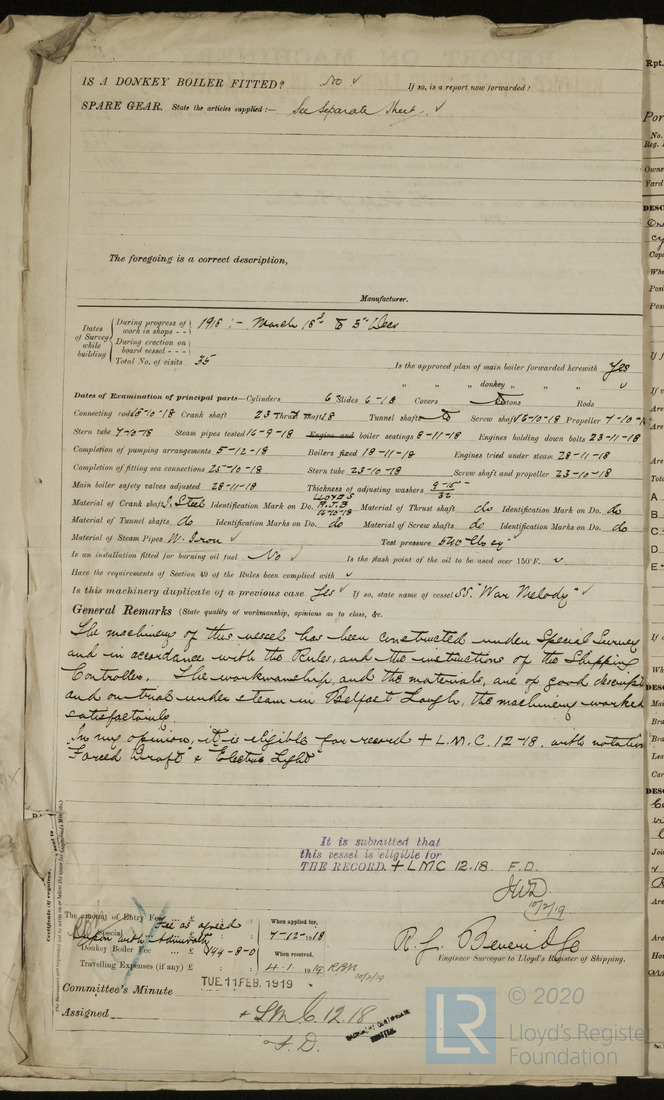 IS A DONKEY BOILER FITTED? No ✓ If so, is a report now forwarded?
SPARE GEAR. State the articles supplied:— See Separate Sheet. ✓
The foregoing is a correct description,
Manufacturer.
Dates of Survey while building
During progress of work in shops - - 1918 :- March 18th to 5th Dec
During erection on board vessel - - -
Total No. of visits 35
Is the approved plan of main boiler forwarded herewith Yes
" " " donkey " " "
Dates of Examination of principal parts—Cylinders 6 Slides 6-18 Covers Pistons Rods
Connecting rods 15-10-18 Crank shaft 23 Thrust shaft 18 Tunnel shafts Screw shaft 16-10-18 Propeller 7-10-18
Stern tube 7-10-18 Steam pipes tested 16-9-18 Engine and boiler seatings 8-11-18 Engines holding down bolts 23-11-18
Completion of pumping arrangements 5-12-18 Boilers fixed 18-11-18 Engines tried under steam 28-11-18
Completion of fitting sea connections 25-10-18 Stern tube 23-10-18 Screw shaft and propeller 23-10-18
Main boiler safety valves adjusted 28-11-18 Thickness of adjusting washers 9-15/32
Material of Crank shaft I. Steel Identification Mark on Do. LLOYDS R.J.B 16-10-18 Material of Thrust shaft do Identification Mark on Do. do
Material of Tunnel shafts do Identification Marks on Do. do Material of Screw shafts do Identification Marks on Do. do
Material of Steam Pipes W. Iron ✓ Test pressure 540 lbs sq"
Is an installation fitted for burning oil fuel No ✓ Is the flash point of the oil to be used over 150°F. ✓
Have the requirements of Section 49 of the Rules been complied with ✓
Is this machinery duplicate of a previous case Yes ✓ If so, state name of vessel SS. "War Melody" ✓
General Remarks (State quality of workmanship, opinions as to class, &c.
The machinery of this vessel has been constructed under Special Survey
and in accordance with the Rules, and the instructions of the Shipping
Controller. The workmanship, and the materials, are of good descript
and on trial under steam in Belfast Lough, the machinery worked
satisfactorily.
In my opinion, it is eligible for record + L.M.C. 12-18. with notation
"Forced Draft" & "Electric Light"
It is submitted that
this vessel is eligible for
THE RECORD. + LMC 12.18 F.D.
JWD
10/2/19
The amount of Entry Fee £ Fee as agreed
Special £ upon with Admiralty
Donkey Boiler Fee £ 144-8-0
Travelling Expenses (if any) £
When applied for, 7-12-1918
When received, 4.1.1919
10/2/19
R. J. Beveridge
Engineer Surveyor to Lloyd's Register of Shipping.
Committee's Minute TUE. 11 FEB. 1919
Assigned + L.M.C. 12.18
F.D.
© 2020
Lloyd's Register
Foundation
LR
Certificate (if required)
Rpt.
Por
No.
Reg.
Owne
Yard
DESC